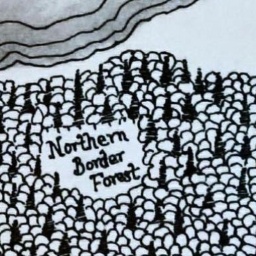 Northern
Border
Forest